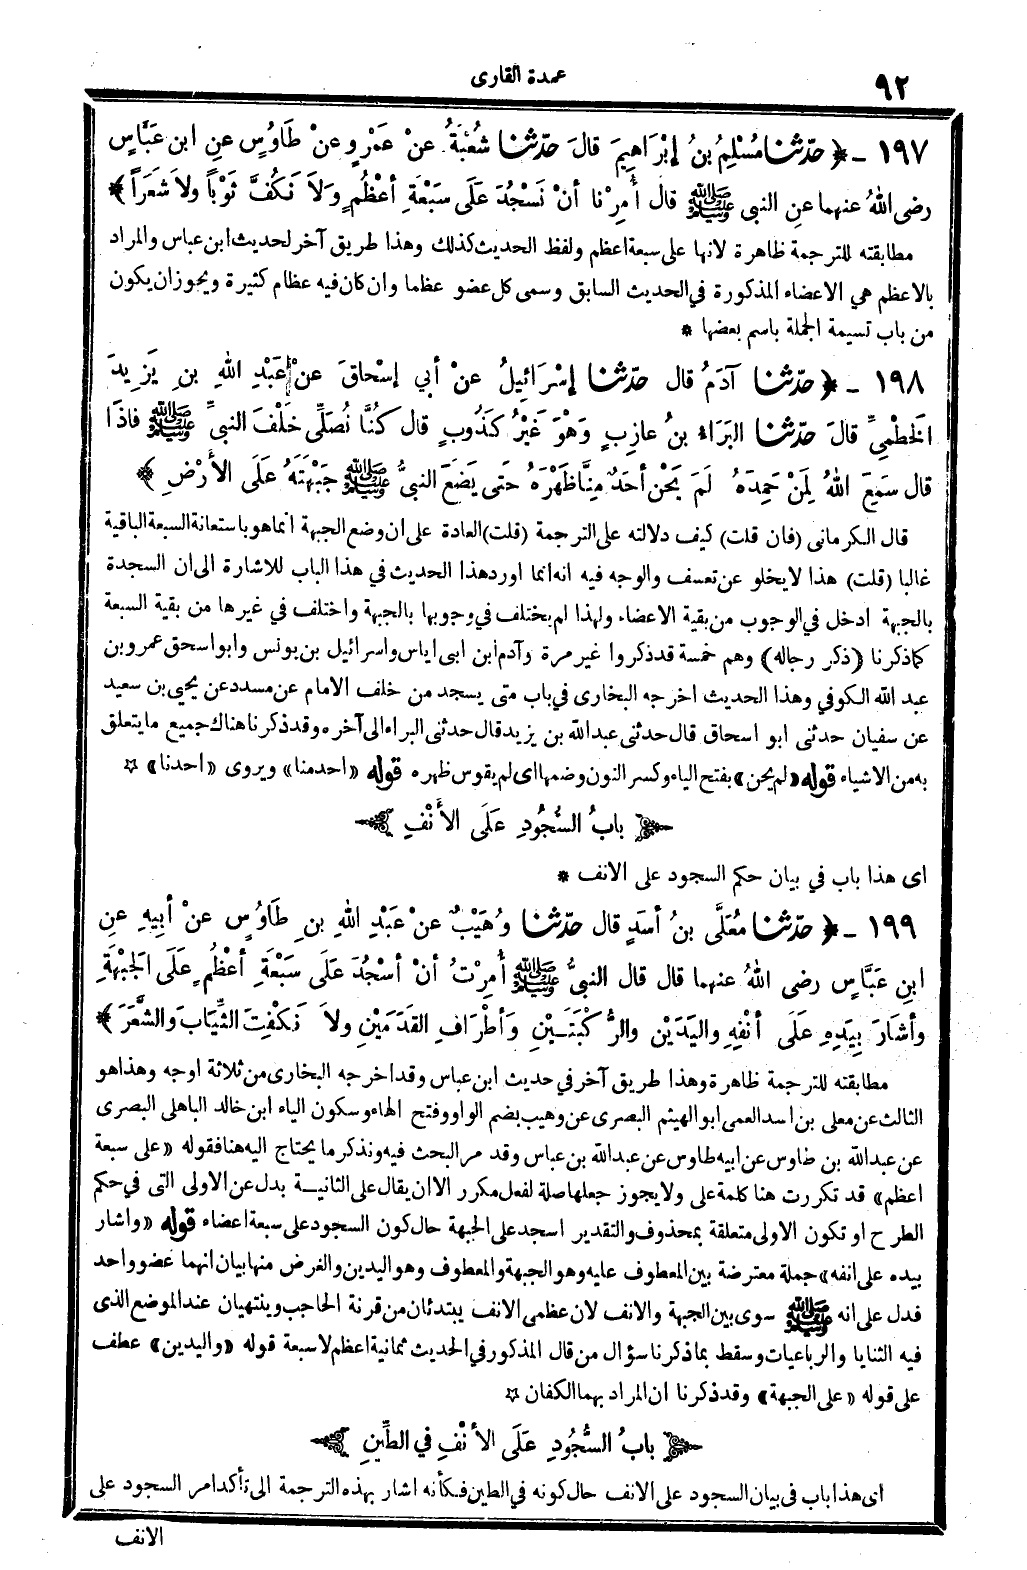 ٩٢
عمدة القارى
١٩٧ - ﴿ حَدَّثَنَا مُسْلِمُ بنُ إبْرَاهِيمَ قالَ حَدَّثَنَا شُعْبَةُ عنْ عَمْرٍو عنْ طَاوُسٍ عنِ ابن عَبَّاسٍ
رضى اللهُ عنهما عنِ النبي ﷺ قال أُمِرْنا أنْ نَسْجُدَ عَلَى سَبْعَةِ أعْظُمٍ ولاَ نَكُفَّ ثَوْباً ولاَ شَعَراً ﴾
مطابقته للترجمة ظاهرة لانها على سبعة اعظم ولفظ الحديث كذلك وهذا طريق آخر لحديث ابن عباس والمراد
بالاعظم هي الاعضاء المذكورة في الحديث السابق وسمى كل عضو عظما وان كان فيه عظام كثيرة ويجوز ان يكون
من باب تسيمة الجملة باسم بعضها *
١٩٨ - ﴿ حَدَّثَنَا آدَمُ قال حَدَّثَنَا إسْرَائِيلُ عنْ أبي إسْحاقَ عنْ عَبْدِ اللهِ بنِ يَزِيدَ
الخَطْمِيِّ قالَ حَدَّثَنَا البَرَاءُ بنُ عازِبٍ وَهْوَ غَيْرُ كَذُوبٍ قال كُنَّا نُصَلِّي خَلْفَ النبيِّ ﷺ فاذَا
قال سَمِعَ اللهُ لِمَنْ حَمِدَهُ لَمْ يَحْنِ أحَدٌ مِنَّا ظَهْرَهُ حَتَى يَضَعَ النبيُّ ﷺ جَبْهَتَهُ عَلَى الأَرْضِ ﴾
قال الكرمانى (فان قلت) كيف دلالته على الترجمة (قلت) العادة على ان وضع الجبهة انما هو باستعانة السبعة الباقية
غالبا (قلت) هذا لا يخلو عن تعسف والوجه فيه انه انما اورد هذا الحديث في هذا الباب للاشارة الى ان السجدة
بالجبهة ادخل في الوجوب من بقية الاعضاء ولهذا لم يختلف في وجوبها بالجبهة واختلف في غيرها من بقية السبعة
كما ذكرنا (ذكر رجاله) وهم خمسة قد ذكروا غير مرة وآدم ابن ابى اياس واسرائيل بن يونس وابو اسحق عمرو بن
عبد الله الكوفي وهذا الحديث اخرجه البخارى في باب متى يسجد من خلف الامام عن مسدد عن يحيى بن سعيد
عن سفيان حدثنى ابو اسحاق قال حدثنى عبد الله بن يزيد قال حدثنى البراء الى آخره وقد ذكرنا هناك جميع ما يتعلق
به من الاشياء قوله «لم يحن» بفتح الياء وكسر النون وضمها اى لم يقوس ظهره قوله «احد منا» ويروى «احدنا» ☆
﴿ بابُ السُّجُودِ عَلَى الأنْفِ ﴾
اى هذا باب في بيان حكم السجود على الانف *
١٩٩ - ﴿ حَدَّثَنَا مُعَلَّى بنُ أسَدٍ قال حَدَّثَنَا وُهَيْبٌ عنْ عَبْدِ اللهِ بنِ طَاوُسٍ عنْ أبِيهِ عنِ
ابنِ عَبَّاسٍ رضى اللهُ عنهما قال قال النبيُّ ﷺ أُمِرْتُ أنْ أسْجُدَ عَلَى سَبْعَةِ أعْظُمٍ عَلَى الجَبْهَةِ
وأشَارَ بِيَدِهِ عَلَى أنْفِهِ واليَدَيْنِ والرُّكْبَتَيْنِ وَأطْرَافِ القَدَمَيْنِ ولاَ نَكْفِتَ الثِّيَابَ والشَّعَرَ ﴾
مطابقته للترجمة ظاهرة وهذا طريق آخر في حديث ابن عباس وقد اخرجه البخارى من ثلاثة اوجه وهذا هو
الثالث عن معلى بن اسد العمى ابو الهيثم البصرى عن وهيب بضم الواو وفتح الهاء وسكون الياء ابن خالد الباهلى البصرى
عن عبد الله بن طاوس عن ابيه طاوس عن عبد الله بن عباس وقد مر البحث فيه ونذكر ما يحتاج اليه هنا فقوله «على سبعة
اعظم» قد تكررت هنا كلمة على ولا يجوز جعلها صلة لفعل مكرر الا ان يقال على الثانية بدل عن الاولى التى في حكم
الطرح او تكون الاولى متعلقة بمحذوف والتقدير اسجد على الجبهة حال كون السجود على سبعة اعضاء قوله «واشار
بيده على انفه» جملة معترضة بين المعطوف عليه وهو الجبهة والمعطوف وهو اليدين والغرض منها بيان انهما عضو واحد
فدل على انه ﷺ سوى بين الجبهة والانف لان عظمى الانف يبتدئان من قرنة الحاجب وينتهيان عند الموضع الذى
فيه الثنايا والرباعيات وسقط بما ذكرنا سؤال من قال المذكور في الحديث ثمانية اعظم لا سبعة قوله «واليدين» عطف
على قوله «على الجبهة» وقد ذكرنا ان المراد بهما الكفان ☆
﴿ بابُ السُّجُودِ عَلَى الأنْفِ في الطِّينِ ﴾
اى هذا باب في بيان السجود على الانف حال كونه في الطين فكأنه اشار بهذه الترجمة الى تأكد امر السجود على
الانف